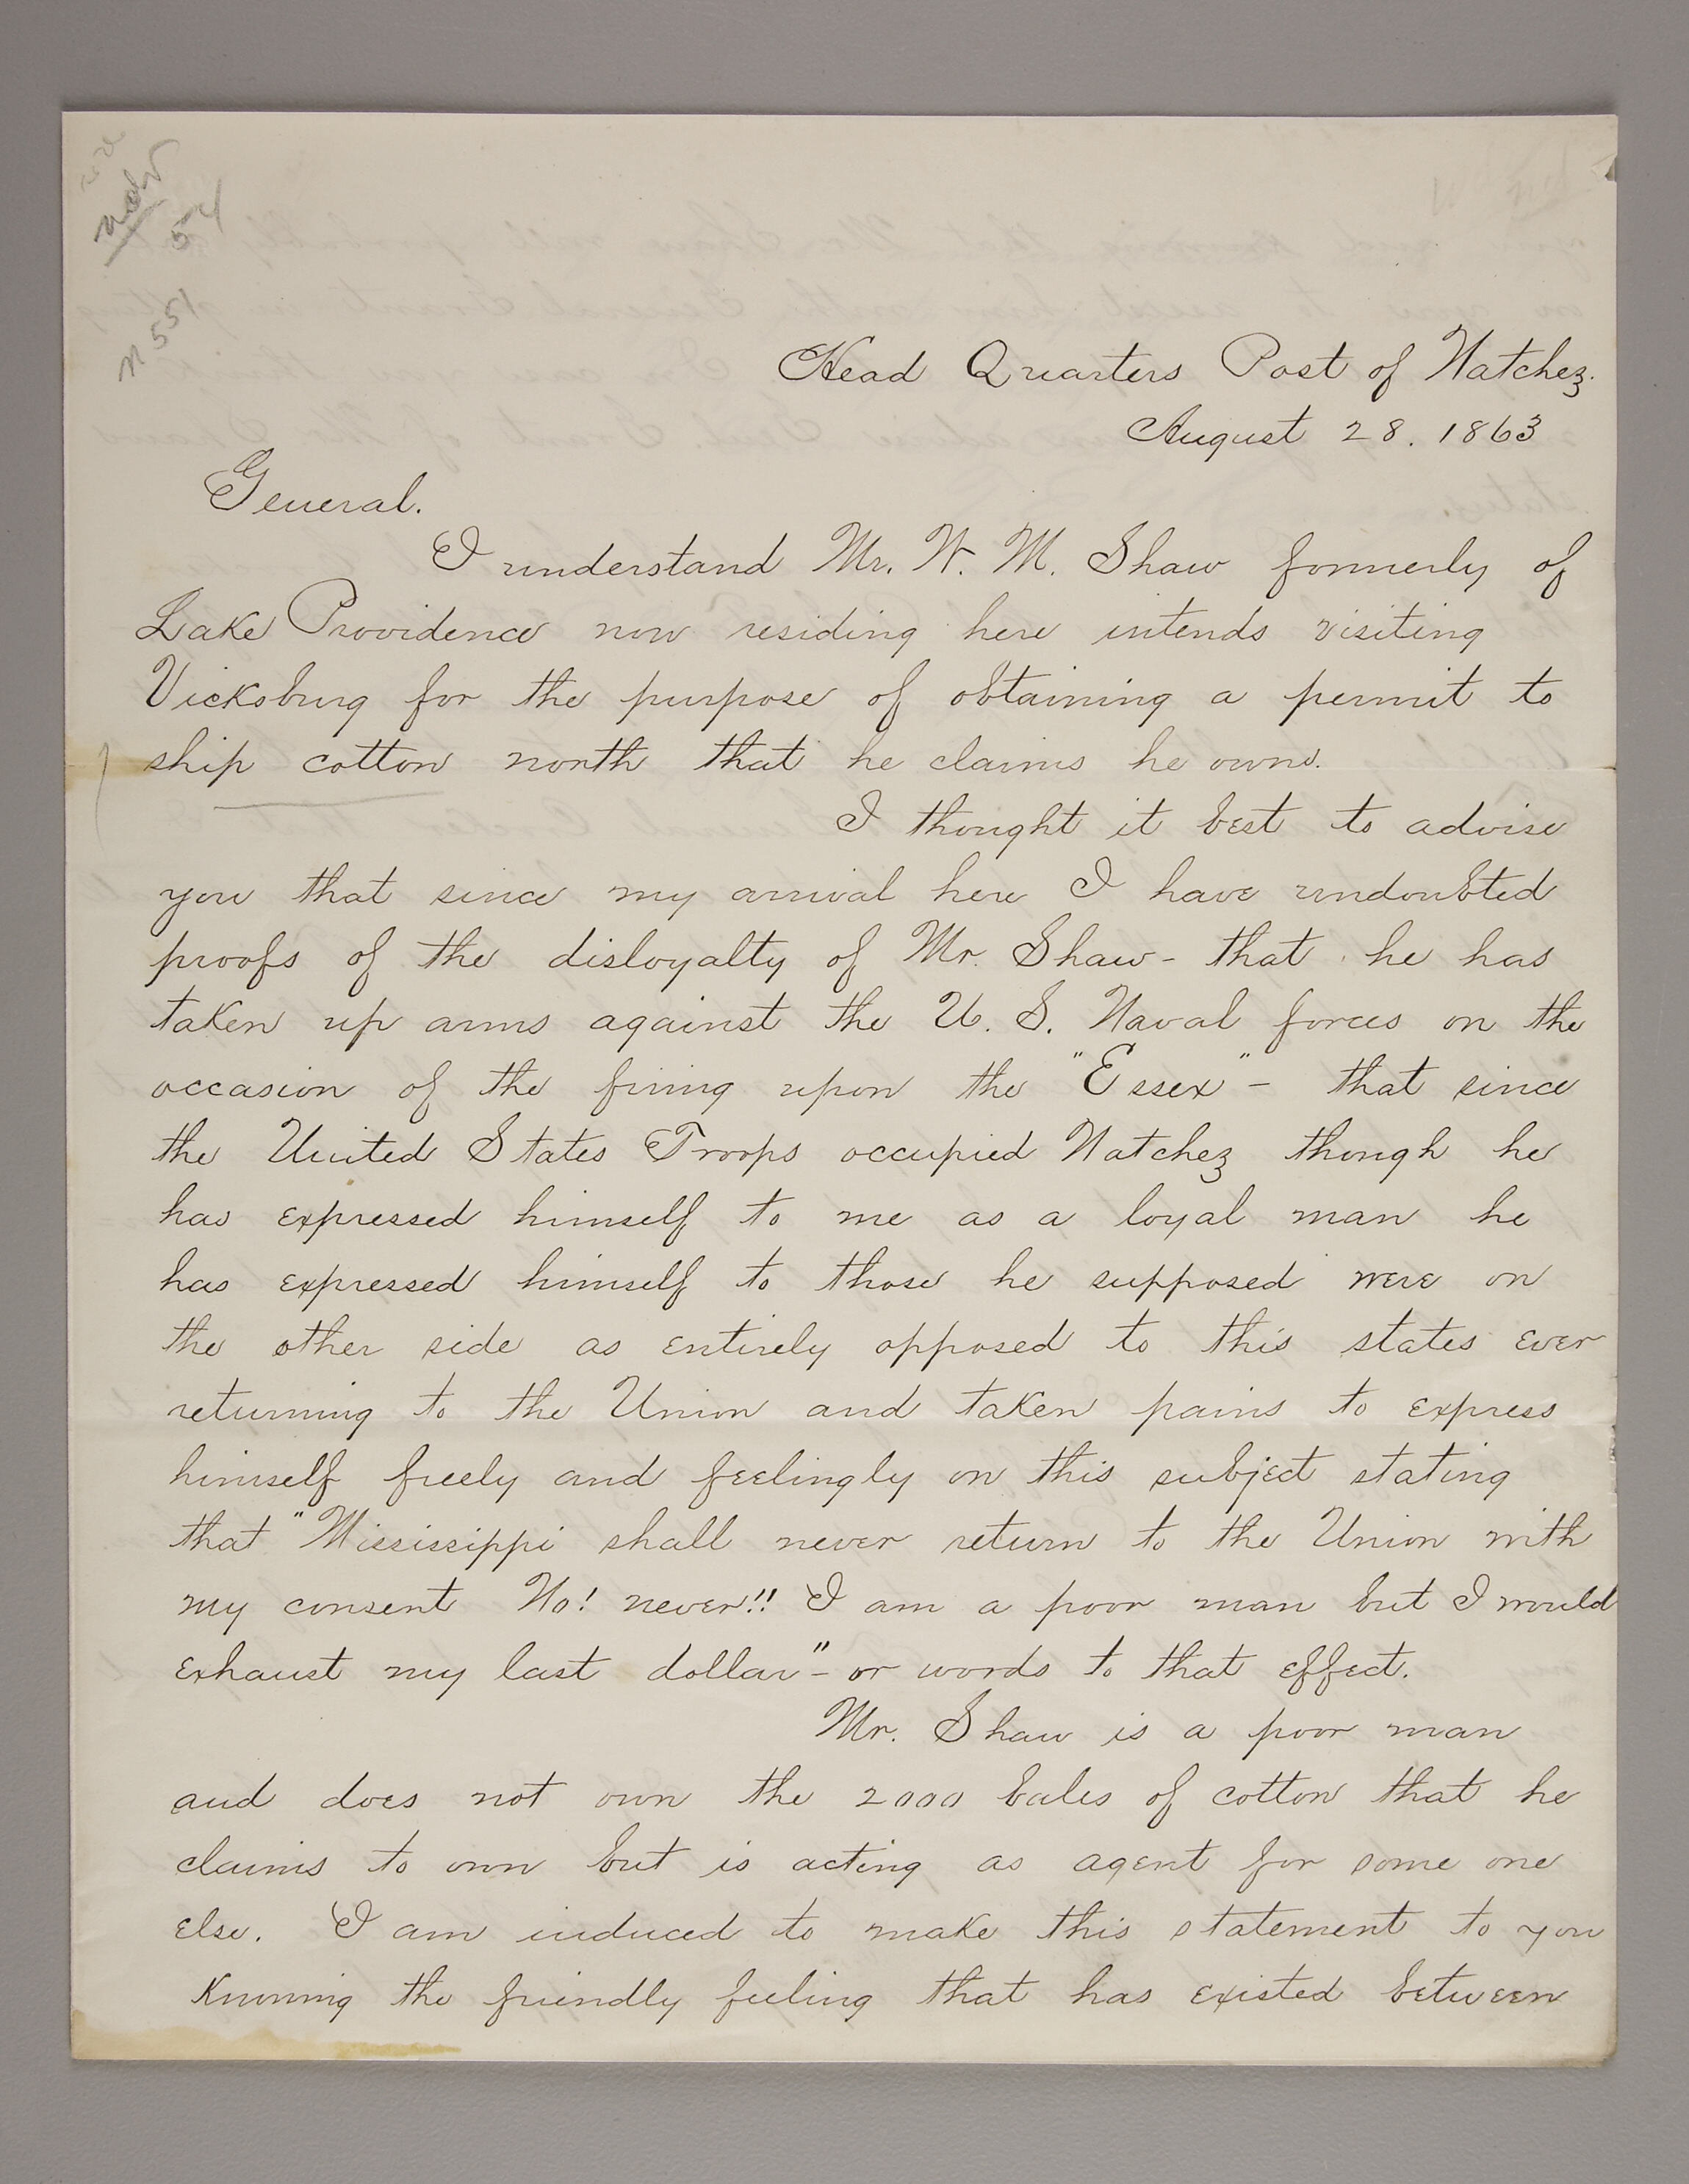 54
N 551
Head Quarters Post of Natchez.
August 28. 1863
General.
I understand Mr. W. M. Shaw formerly of
Lake Providence now residing here intends visiting
Vicksburg for the purpose of obtaining a permit to
ship cotton north that he claims he owns.
I thought it best to advise
you that since my arrival here I have undoubted
proofs of the disloyalty of Mr. Shaw - that he has
taken up arms against the U. S. Naval forces on the
occasion of the firing upon the "Essex" - that since
the United States Troops occupied Natchez though he
has expressed himself to me as a loyal man he
has expressed himself to those he supposed were on
the other side as entirely opposed to this states ever
returning to the Union and taken pains to express
himself freely and feelingly on this subject stating
that "Mississippi shall never return to the Union with
my consent No! never!! I am a poor man but I would
exhaust my last dollar" - or words to that effect.
Mr. Shaw is a poor man
and does not own the 2000 bales of cotton that he
claims to own but is acting as agent for some one
else. I am induced to make this statement to you
Knowing the friendly feeling that has existed between